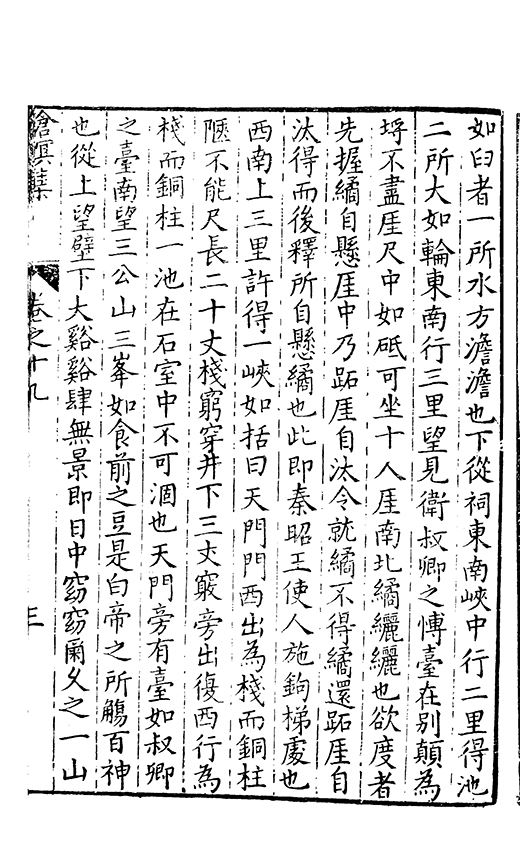 如臼者一所水方澹澹也下從祠東南峽中行二里得池
二所大如輪東南行三里望見衛叔卿之愽臺在别顛為
埒不盡厓尺中如砥可坐十人厓南北繘纚纚也欲度者
先握繘自懸厓中乃跖厓自汰令就繘不得繘還跖厓自
汰得而後釋所自懸繘也此即秦昭王使人施鉤梯處也
西南上三里許得一峽如括曰天門門西出為棧而銅柱
陿不能尺長二十丈棧窮穿井下三丈竅旁出復西行為
棧而銅柱一池在石室中不可涸也天門旁有臺如叔卿
之臺南望三公山三峯如食前之豆是白帝之所觴百神
也從上望壁下大谿谿肆無景即日中窈窈爾久之一山
滄溟集
卷之十九
三